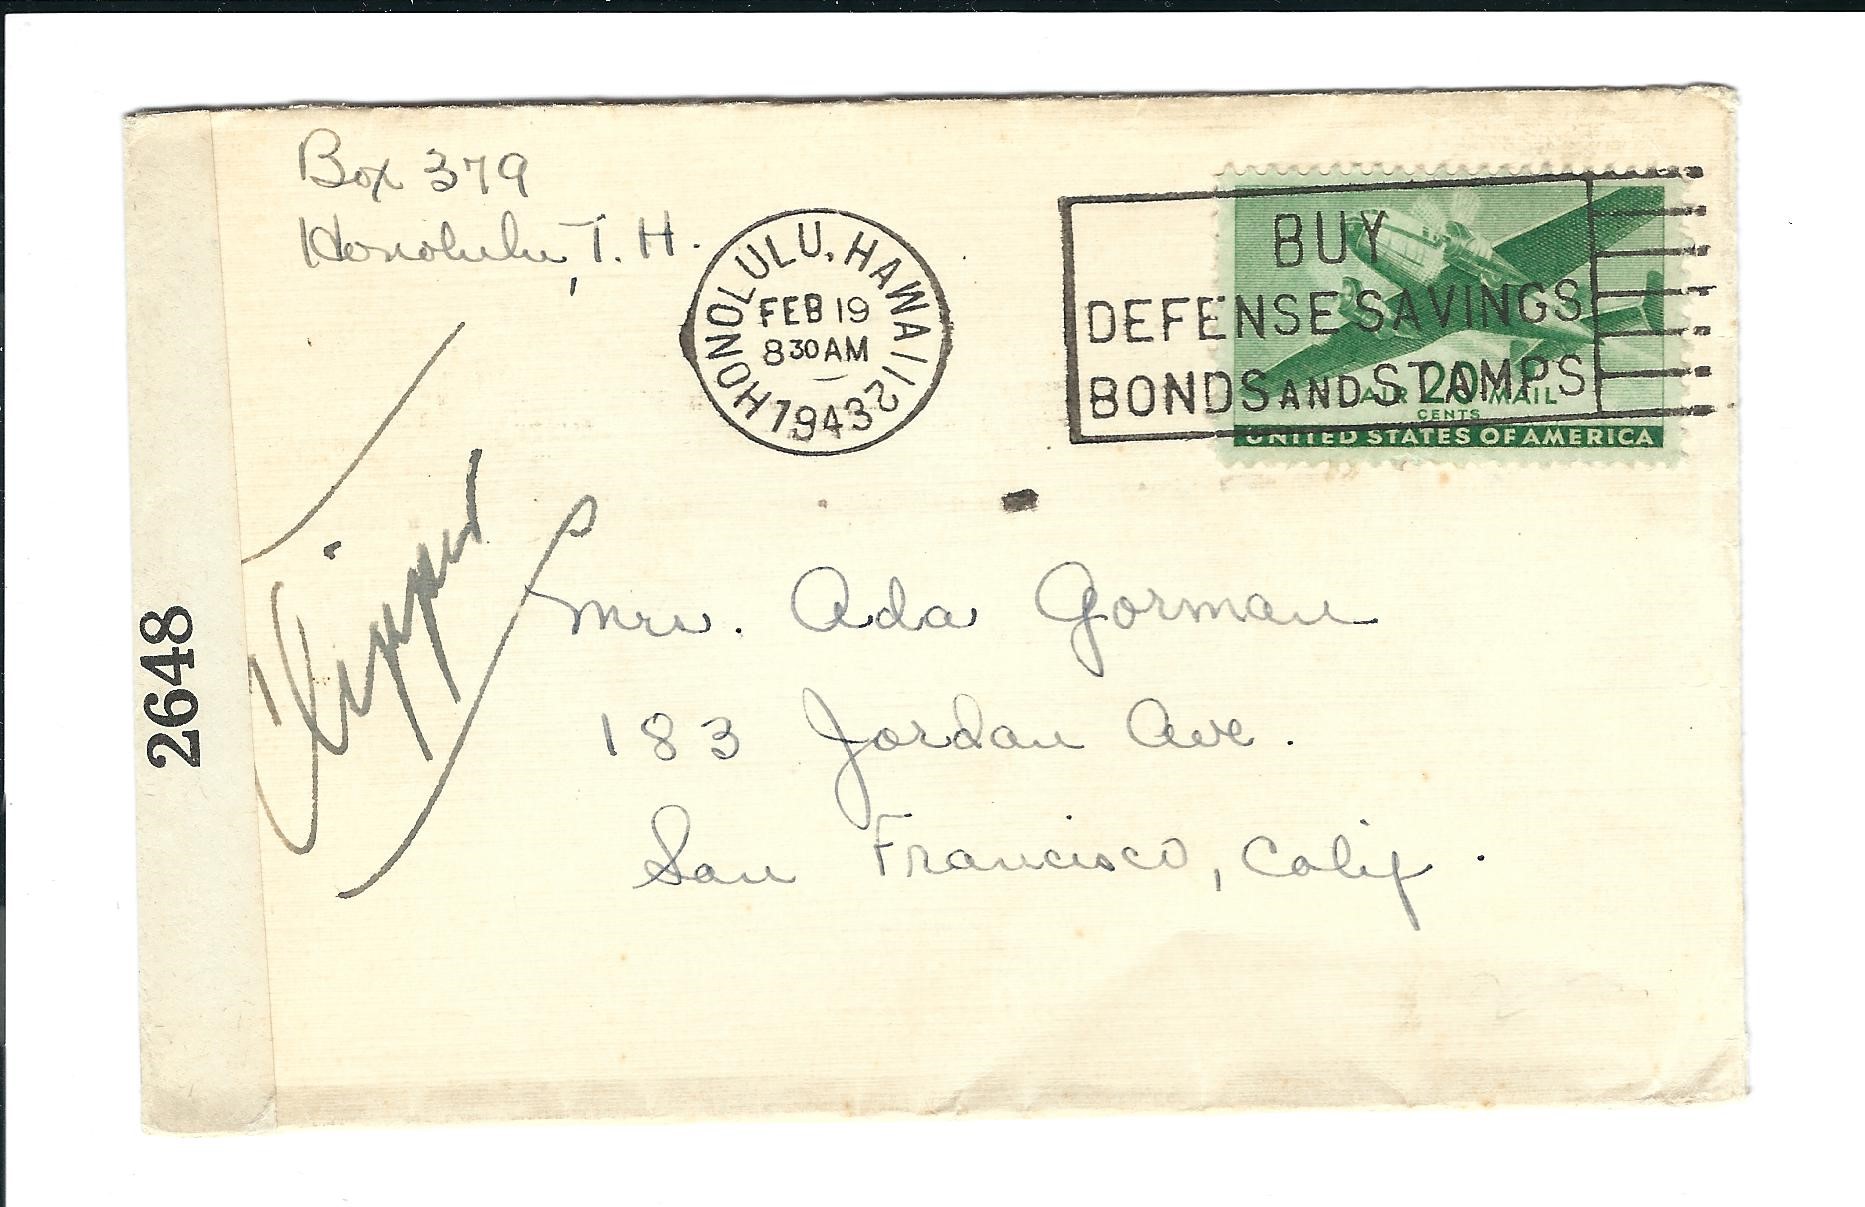 Box 379
Honolulu, T. H.
HONOLULU, HAWAII 2
FEB 19
8 30 AM
1943
BUY
DEFENSE SAVINGS
BONDS AND STAMPS
AIR 20 MAIL
CENTS
UNITED STATES OF AMERICA
2648
Clipper
Mrs. Ada Gorman
183 Jordan Ave.
San Francisco, Calif.